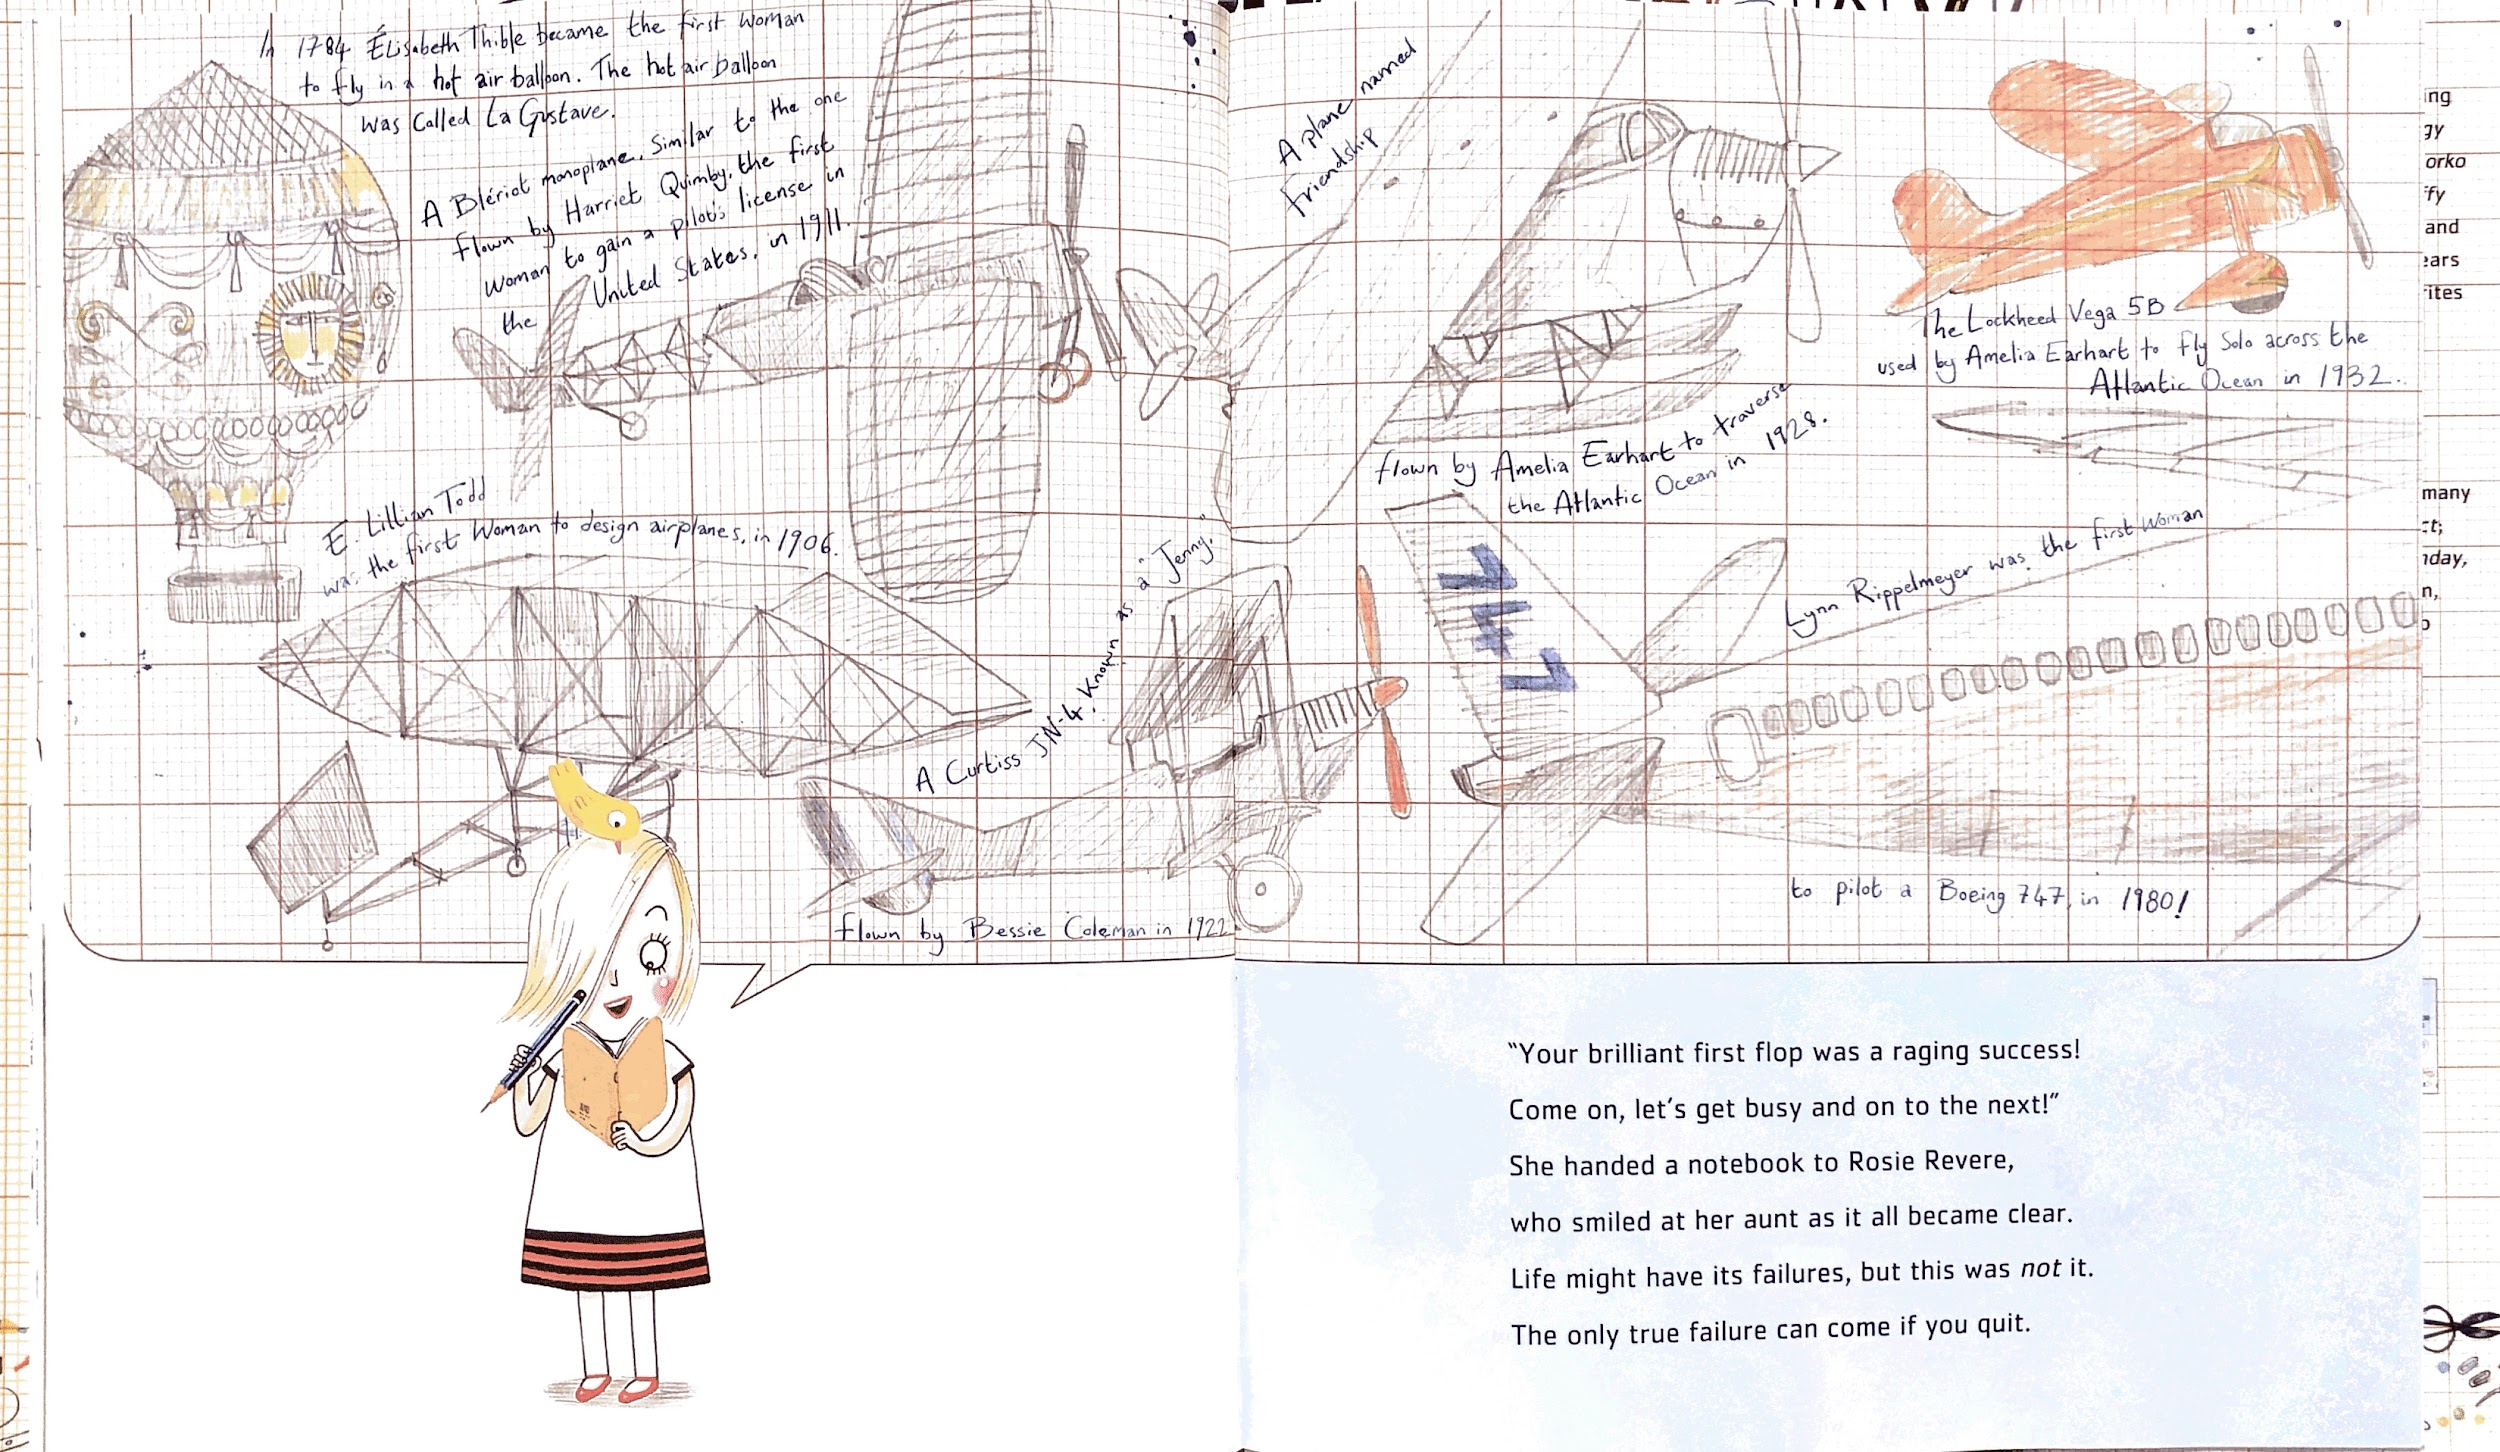 In 1784 Élisabeth Thible became the first woman
to fly in a hot air balloon. The hot air balloon
was called La Gustave.
A Blériot monoplane. Similar to the one
flown by Harriet Quimby, the first
woman to gain a pilot's license in
the United States, in 1911.
E. Lillian Todd
was the first woman to design airplanes, in 1906.
A Curtiss JN-4, Known as a "Jenny,"
flown by Bessie Coleman in 1922
A plane named
Friendship
flown by Amelia Earhart to traverse
the Atlantic Ocean in 1928.
The Lockheed Vega 5B
used by Amelia Earhart to fly solo across the
Atlantic Ocean in 1932.
747
Lynn Rippelmeyer was the first woman
to pilot a Boeing 747, in 1980!
"Your brilliant first flop was a raging success!
Come on, let's get busy and on to the next!"
She handed a notebook to Rosie Revere,
who smiled at her aunt as it all became clear.
Life might have its failures, but this was not it.
The only true failure can come if you quit.
ing
gy
orko
ffy
and
ears
rites
many
ct;
nday,
n,